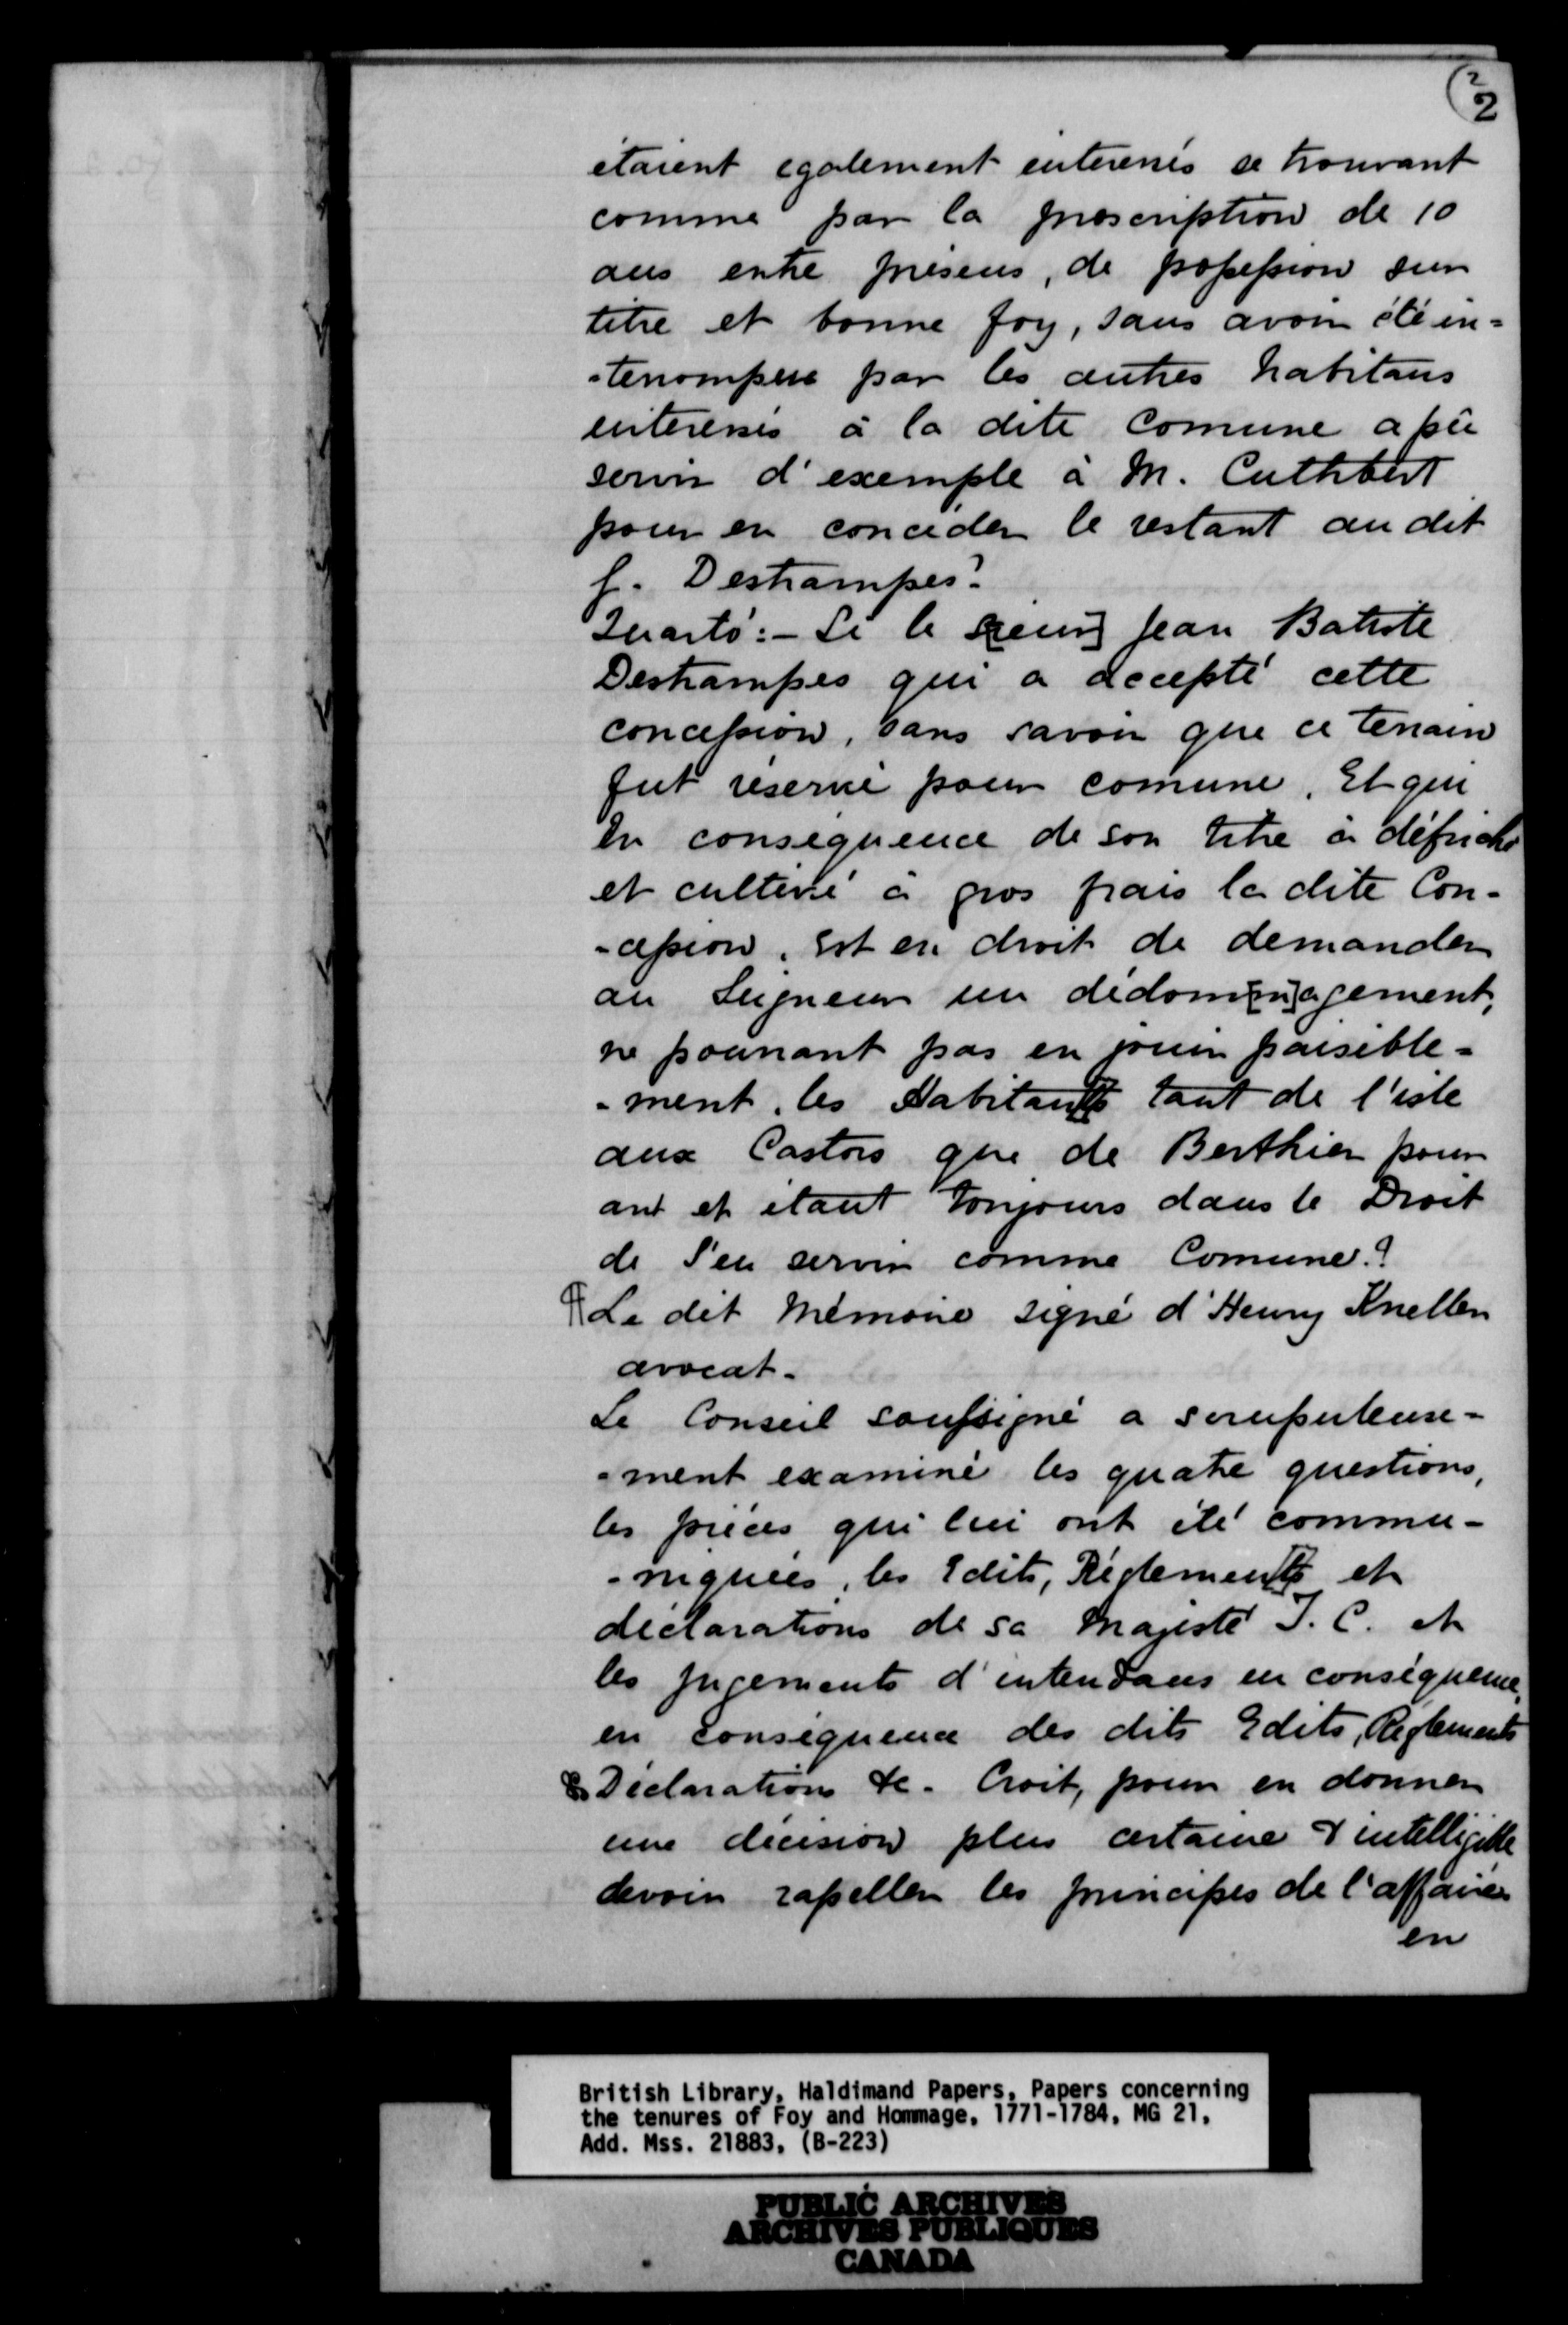 2
2
étaient egalement interessés se trouvant
comme par la prescription de 10
ans entre présens, de possession sur
titre et bonne foy, sans avoir été in=
-terrompus par les autres habitans
interessés à la dite Comune a pû
servir d'exemple à M. Cuthbert
pour en conceder le restant au dit
J. Deshampes?
Quarto:- Si le S[ieur] Jean Batiste
Deshampes qui a accepté cette
concession, sans savoir que ce terrain
fut réservé pour comune. Et qui
En conséquence de son titre a défriché
et cultivé à gros frais la dite Con-
-cession. est en droit de demander
au Seigneur un dédom[m]agement,
ne pouvant pas en jouir paisible=
-ment. les Habitan[t]s tant de l'isle
aux Castors que de Berthier pour
ant et étant toujours dans le Droit
de s'en servir comme Comune?
Le dit Mémoire signé d'Henry Kneller
avocat.
Le Conseil soussigné a scrupuleuse-
=ment examiné les quatre questions,
les piéces qui lui ont été commu-
-niquées, les Edits, Réglemen[t]s et
déclarations de sa Majesté T. C. et
les jugements d'intendans en conséquence,
en conséquence des dits Edits, Réglements
& Déclarations &c. Croit, pour en donner
une décision plus certaine & intelligible
devoir rapeller les principes de l'affaire
en
British Library, Haldimand Papers, Papers concerning
the tenures of Foy and Hommage, 1771-1784, MG 21,
Add. Mss. 21883, (B-223)
PUBLIC ARCHIVES
ARCHIVES PUBLIQUES
CANADA